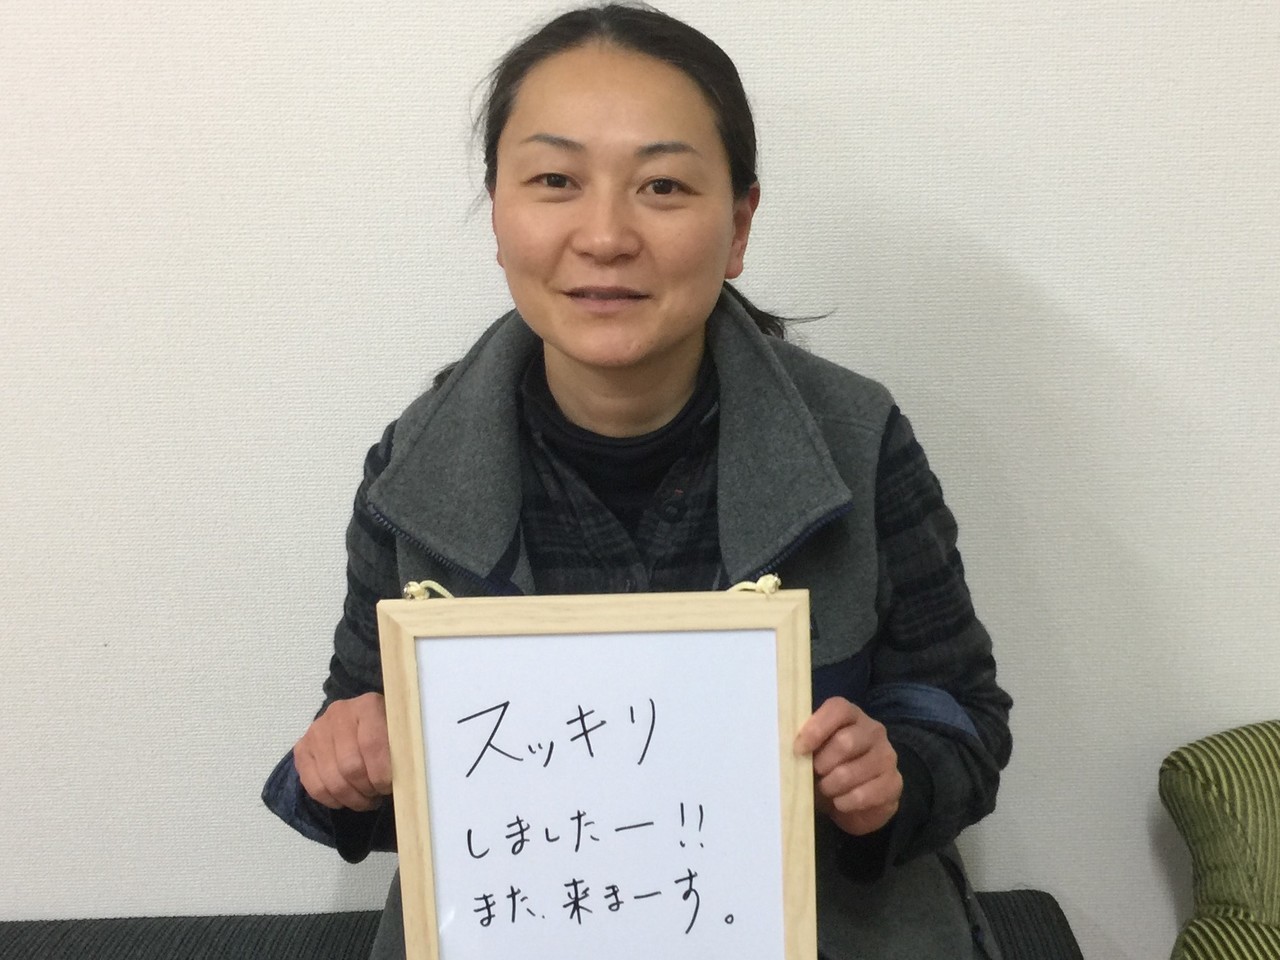 スッキリ
しましたー!!
また、来まーす。